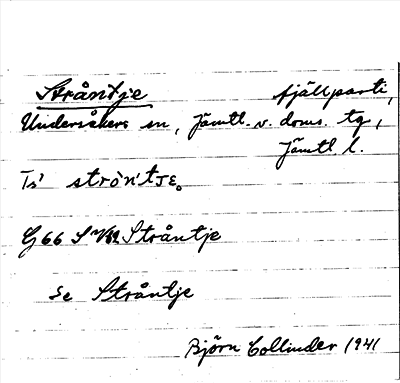 Stråntje fjällparti,
Undersåkers sn, Jämtl. v. doms. tg,
Jämtl. l.
G 66 Stråntje
Se Stråntje
Björn Collinder 1941